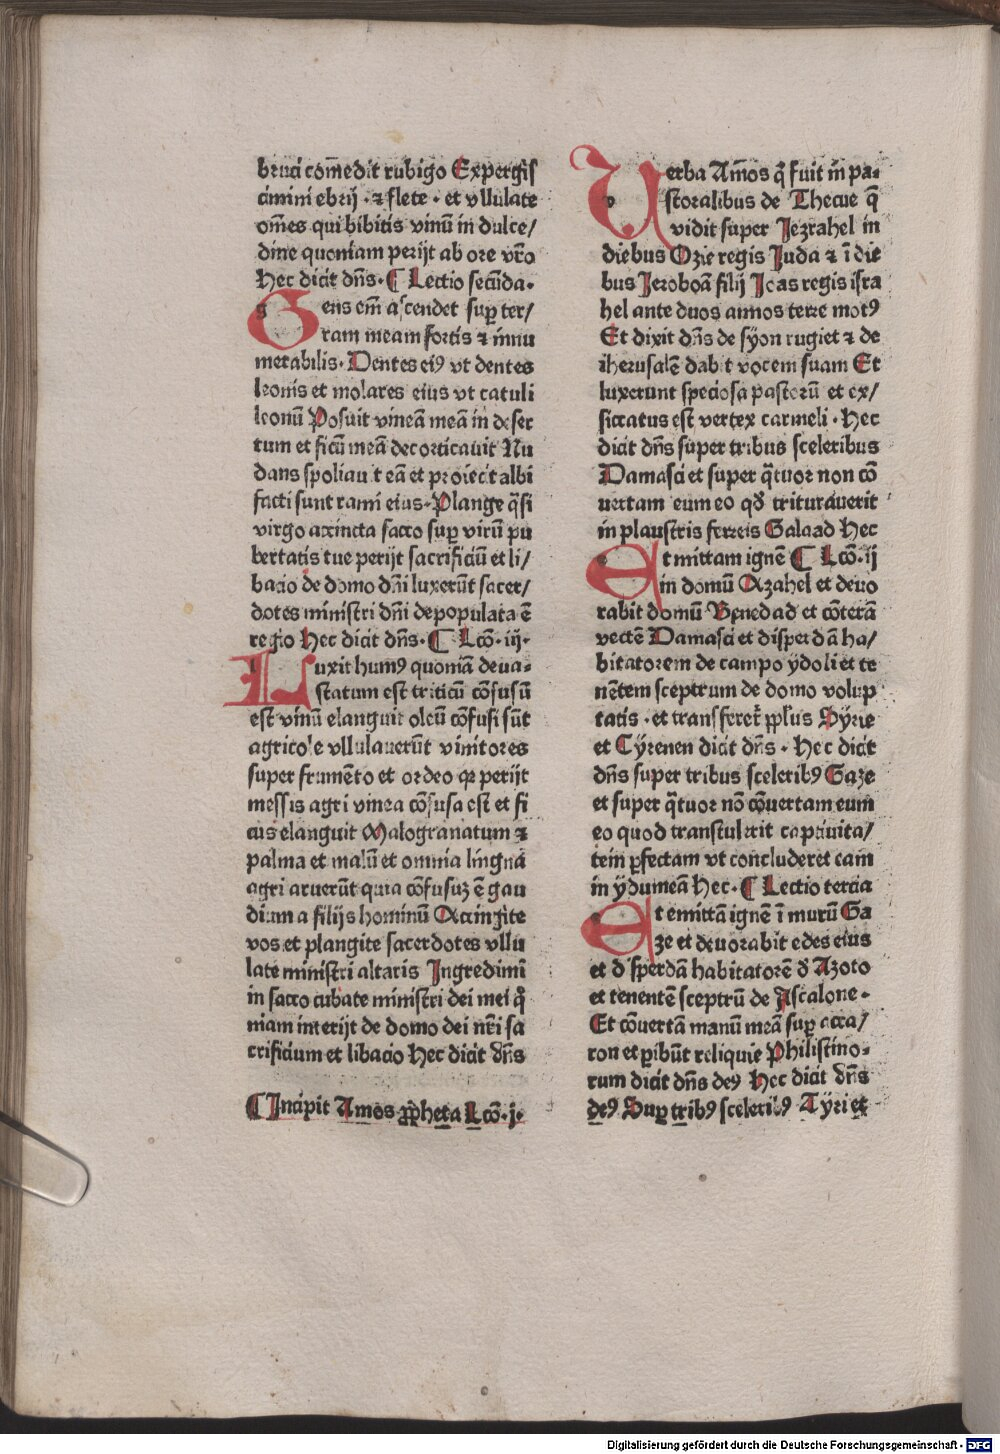 bruci com̃edit rubigo Expergis
cimini ebrij · ⁊ flete · et vllulate
om̃es qui bibitis vinũ in dulce/
dine quoniam perijt ab ore vr̃o
Hec dicit dn̄s · ¶ Lectio secũda·
Gens em̃ ascendet sup ter/
ram meam fortis ⁊ innu
merabilis · Dentes eiꝰ vt dentes
leonis et molares eius vt catuli
leonũ Posuit vineã meã in deser
tum et ficũ meã decorticauit Nu
dans spoliauit eã et proiecit albi
facti sunt rami eius · Plange q̃si
virgo accincta sacco sup virũ pu
bertatis tue perijt sacrificiũ et li/
bacio de domo dñi luxerũt sacer/
dotes ministri dñi depopulata ẽ
regio Hec dicit dn̄s · ¶ Lcõ · iij ·
Luxit humꝰ quoniã deua-
statum est triticũ cõfusũ
est vinũ elanguit oleũ cõfusi sũt
agricole vllulauerũt vinitores
super frumẽto et ordeo qꝛ perijt
messis agri vinea cõfusa est et fi
cus elanguit Malogranatum ⁊
palma et malũ et omnia lingna
agri aruerũt quia cõfusuz ẽ gau
dium a filijs hominũ Accingite
vos et plangite sacerdotes vllu
late ministri altaris Ingredimĩ
in sacco cubate ministri dei mei q̃
niam interijt de domo dei nr̃i sa
crificium et libacio Hec dicit dn̄s
¶ Incipit Amos ꝓpheta Lcõ · j ·
Verba Amos q̃ fuit in pa-
storalibus de Thecue q̃
vidit super Jezrahel in
diebus Ozie regis Juda ⁊ ĩ die
bus Jeroboã filij Joas regis isra
hel ante duos annos terre motꝰ
Et dixit dn̄s de sÿon rugiet ⁊ de
iherusalẽ dabit vocem suam Et
luxerunt speciosa pastorũ et ex/
siccatus est vertex carmeli · Hec
dicit dn̄s super tribus sceleribus
Damasci et super q̃tuor non cõ
uertam eum eo qđ triturauerit
in plaustris ferreis Galaad Hec
Et mittam ignẽ ¶ Lcõ · ij
in domũ Azahel et deuo
rabit domũ Benedad et cõterã
vectẽ Damasci et disperdã ha/
bitatorem de campo ÿdoli et te
nẽtem sceptrum de domo volup
tatis · et transferet̃ ppl̃us Sÿrie
et Cÿrenen dicit dn̄s · Hec dicit
dn̄s super tribus sceleribꝰ Gaze
et super q̃tuor nõ cõuertam eum
eo quod transtulerit captiuita/
tem ꝑfectam vt concluderet eam
in ÿdumeã Hec · ¶ Lectio tercia
Et emittã ignẽ ĩ murũ Ga
ze et deuorabit edes eius
et disperdã habitatorẽ đ Azoto
et tenentẽ sceptrũ de Ascalone ·
Et cõuertã manũ meã sup acca/
ron et ꝑibũt reliquie Philistino-
rum dicit dn̄s deꝰ Hec dicit dn̄s
deꝰ Sup tribꝰ sceleribꝰ Tÿri et
Digitalisierung gefördert durch die Deutsche Forschungsgemeinschaft - DFG